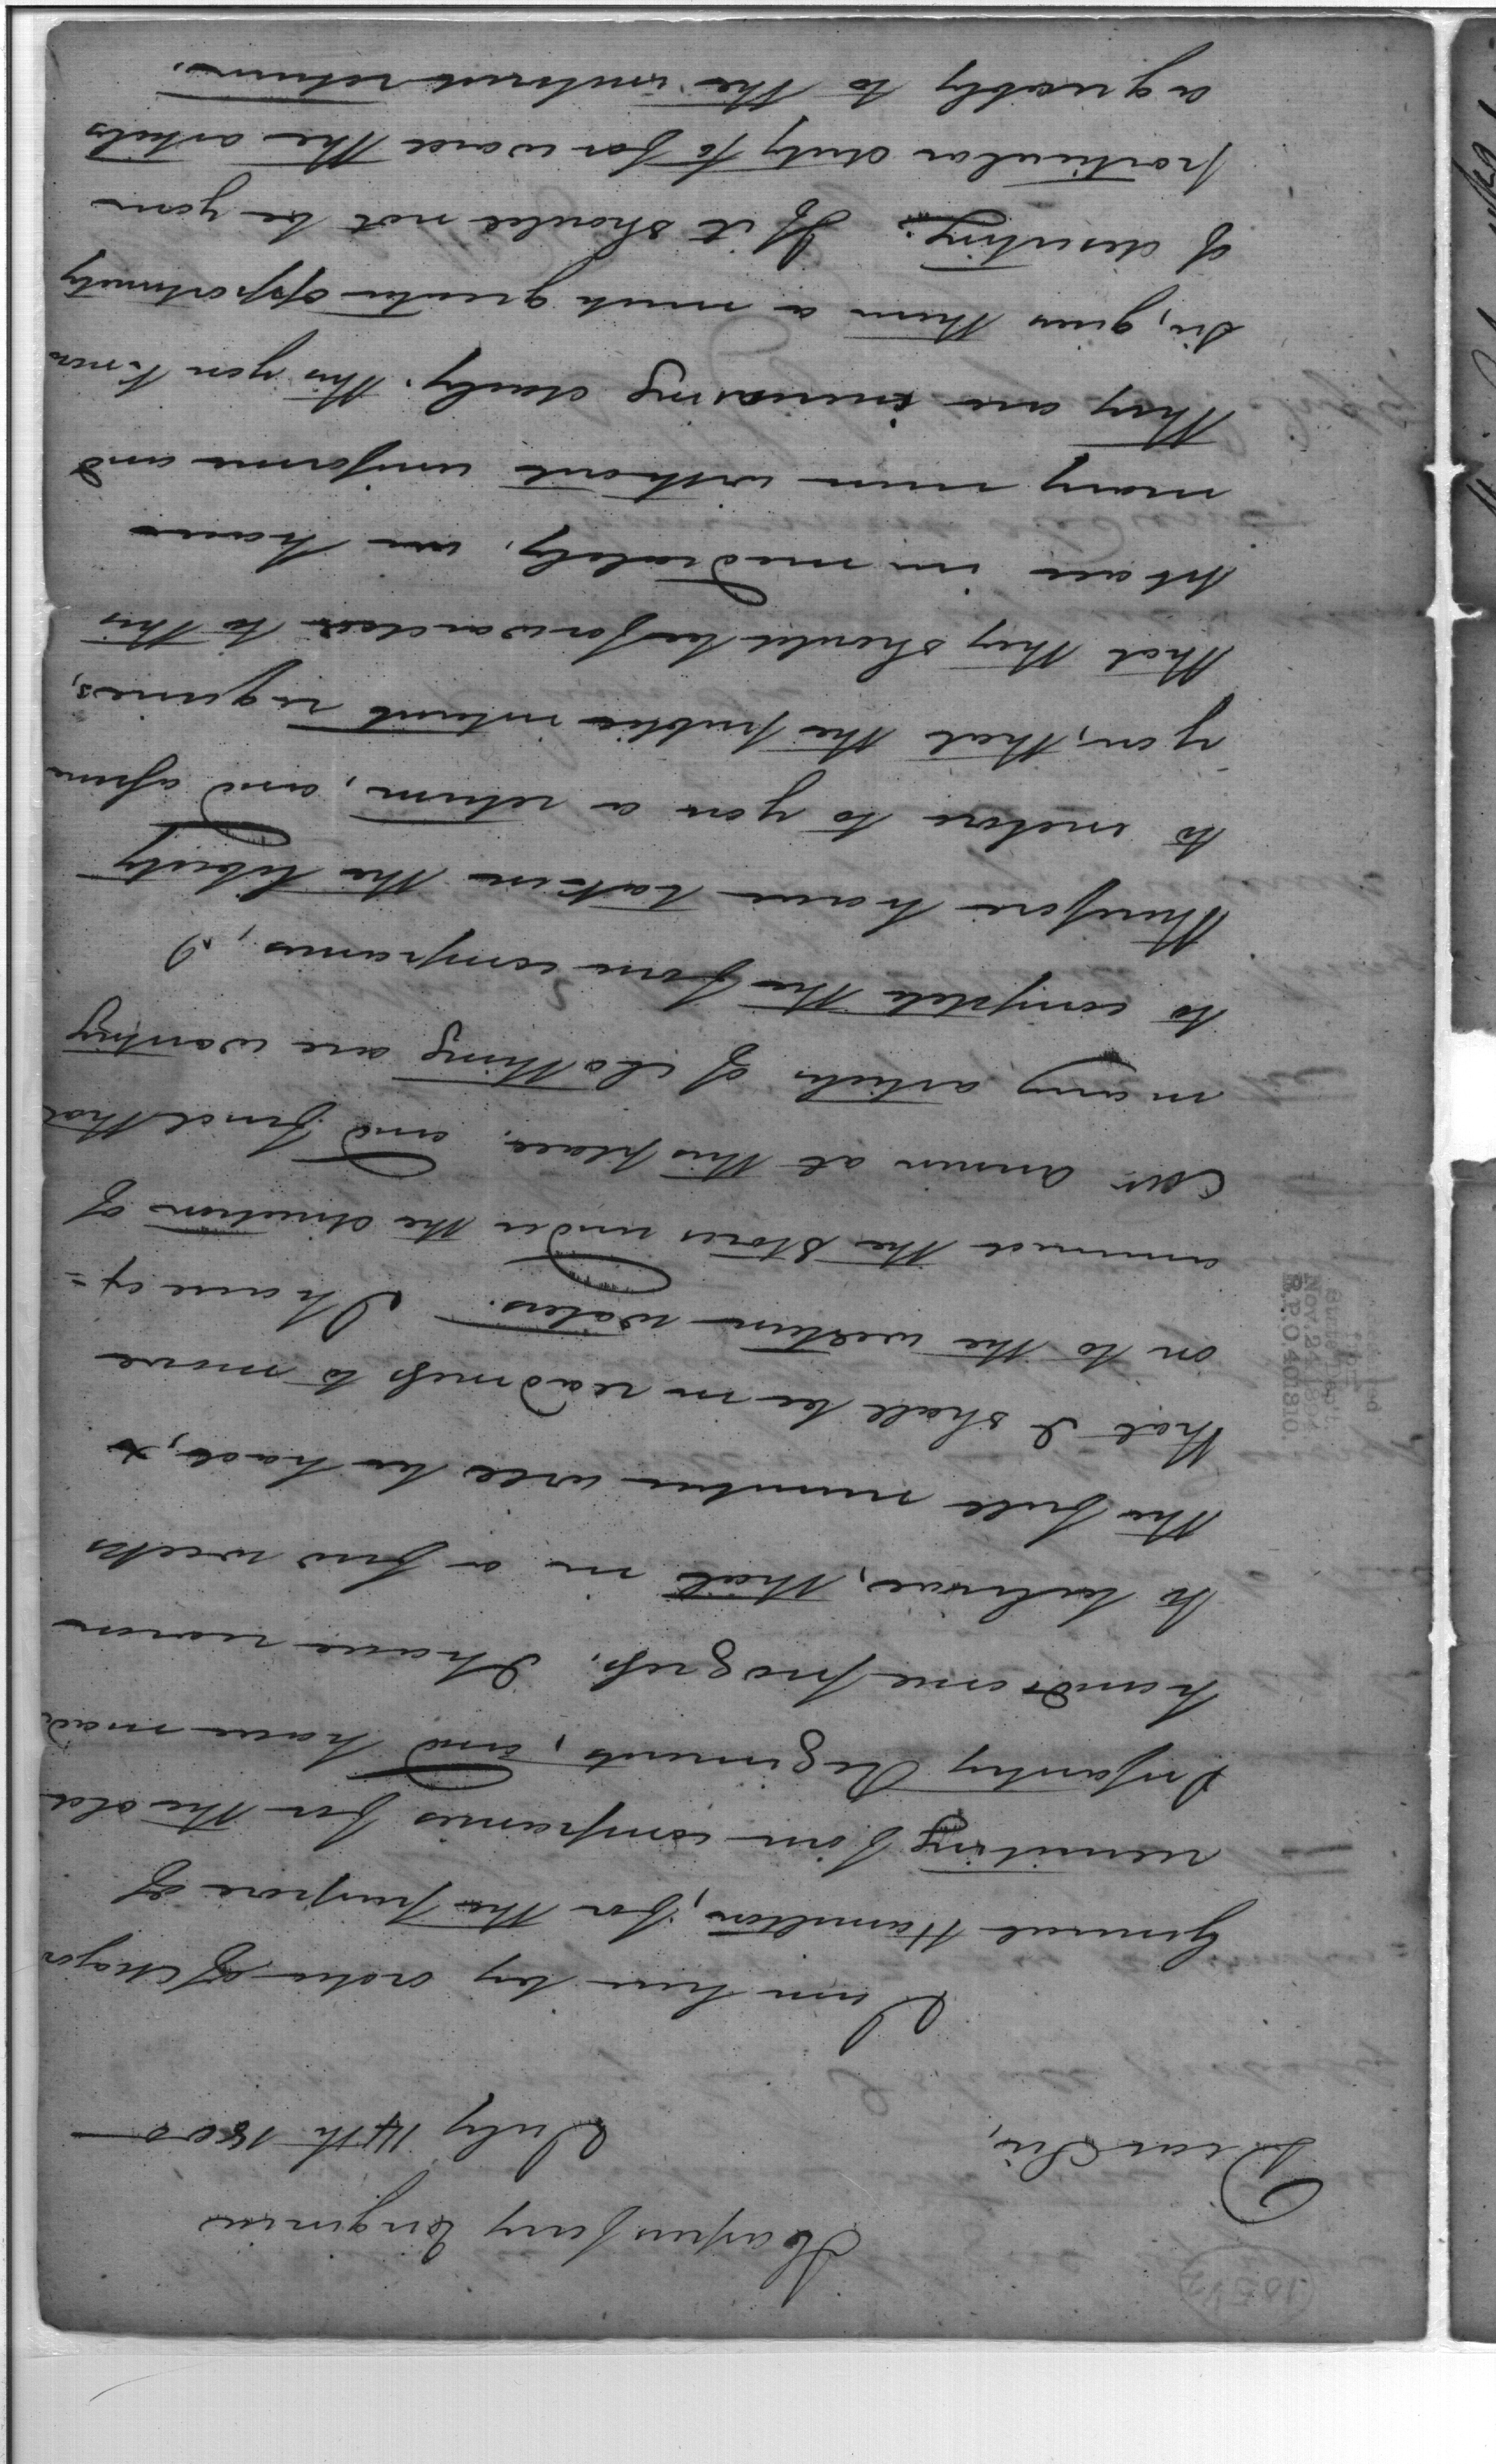 Harpers ferry Virginia
July 14th 1800
Dear Sir,
I am here by order of Major
General Hamilton, for the purpose of
recruiting four companies for the old
Infantry Regiments, and have made
handsome progress. I have reason
to believe, that in a few weeks
the full number will be had, &
that I shall be in readiness to move
on to the western waters. I have ex=
amined the stores under the direction of
Mr. Annin at this place, and find that
many articles of clothing are wanting
to complete the four companies, I
therefore have taken the liberty
to inclose to you a return, and assure
you, that the public interest requires,
that they should be forwarded to this
place immediately. we have
many men without uniforms and
they are increasing daily. this you know
Sir, gives them a much greater opportunity
of deserting. If it should not be your
particular duty to forward the articles
agreeably to the inclosed return.
Nov. 24, 1894
R.P.O. 401810.